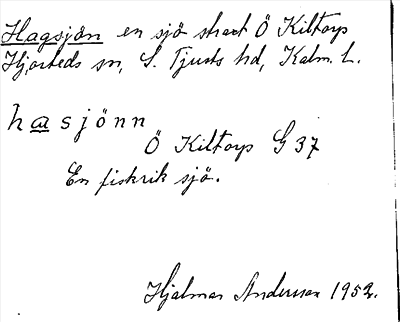 Hagsjön en sjö strax Ö Kiltorp
Hjorteds sn, S. Tjusts hd, Kalm. L.
hasjönn
Ö Kiltorp G 37
En fiskrik sjö.
Hjalmar Andersson 1952.